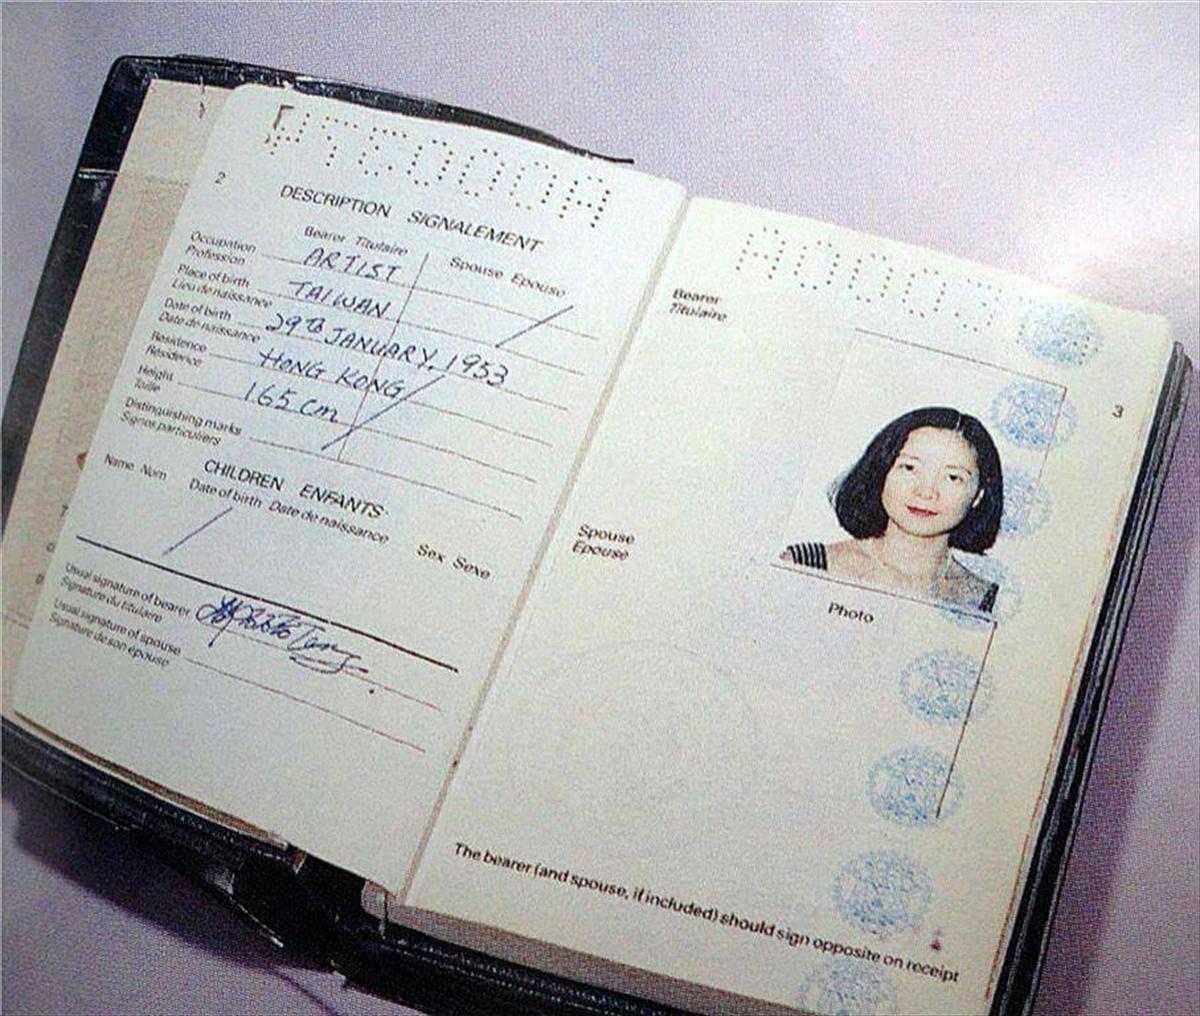 2
DESCRIPTION SIGNALEMENT
Bearer Titulaire Spouse Epouse
Occupation
Profession
ARTIST
Place of birth
Lieu de naissance
TAIWAN
Date of birth
Date de naissance
29th JANUARY, 1953
Residence
Résidence
HONG KONG
Height
Taille
165 cm
Distinguishing marks
Signes particuliers
CHILDREN ENFANTS
Name Nom Date of birth Date de naissance Sex Sexe
Usual signature of bearer
Signature du titulaire
Usual signature of spouse
Signature de son épouse
3
Bearer
Titulaire
Spouse
Epouse
Photo
The bearer (and spouse, if included) should sign opposite on receipt